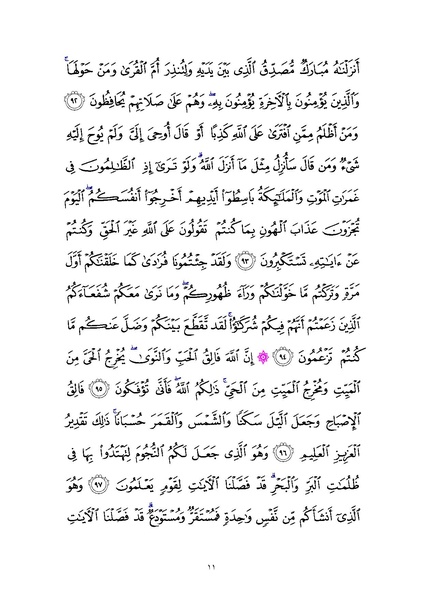 أَنزَلْنَٰهُ مُبَارَكٌ مُّصَدِّقُ ٱلَّذِى بَيْنَ يَدَيْهِ وَلِتُنذِرَ أُمَّ ٱلْقُرَىٰ وَمَنْ حَوْلَهَا ۚ
وَٱلَّذِينَ يُؤْمِنُونَ بِٱلْءَاخِرَةِ يُؤْمِنُونَ بِهِۦ ۖ وَهُمْ عَلَىٰ صَلَاتِهِمْ يُحَافِظُونَ ۝٩٢
وَمَنْ أَظْلَمُ مِمَّنِ ٱفْتَرَىٰ عَلَى ٱللَّهِ كَذِبًا أَوْ قَالَ أُوحِىَ إِلَىَّ وَلَمْ يُوحَ إِلَيْهِ
شَىْءٌ وَمَن قَالَ سَأُنزِلُ مِثْلَ مَآ أَنزَلَ ٱللَّهُ ۗ وَلَوْ تَرَىٰٓ إِذِ ٱلظَّٰلِمُونَ فِى
غَمَرَٰتِ ٱلْمَوْتِ وَٱلْمَلَٰٓئِكَةُ بَاسِطُوٓا۟ أَيْدِيهِمْ أَخْرِجُوٓا۟ أَنفُسَكُمُ ۖ ٱلْيَوْمَ
تُجْزَوْنَ عَذَابَ ٱلْهُونِ بِمَا كُنتُمْ تَقُولُونَ عَلَى ٱللَّهِ غَيْرَ ٱلْحَقِّ وَكُنتُمْ
عَنْ ءَايَٰتِهِۦ تَسْتَكْبِرُونَ ۝٩٣ وَلَقَدْ جِئْتُمُونَا فُرَٰدَىٰ كَمَا خَلَقْنَٰكُمْ أَوَّلَ
مَرَّةٍ وَتَرَكْتُم مَّا خَوَّلْنَٰكُمْ وَرَآءَ ظُهُورِكُمْ ۖ وَمَا نَرَىٰ مَعَكُمْ شُفَعَآءَكُمُ
ٱلَّذِينَ زَعَمْتُمْ أَنَّهُمْ فِيكُمْ شُرَكَٰٓؤُا۟ ۚ لَقَد تَّقَطَّعَ بَيْنَكُمْ وَضَلَّ عَنكُم مَّا
كُنتُمْ تَزْعُمُونَ ۝٩٤ ۞ إِنَّ ٱللَّهَ فَالِقُ ٱلْحَبِّ وَٱلنَّوَىٰ ۖ يُخْرِجُ ٱلْحَىَّ مِنَ
ٱلْمَيِّتِ وَمُخْرِجُ ٱلْمَيِّتِ مِنَ ٱلْحَىِّ ۚ ذَٰلِكُمُ ٱللَّهُ ۖ فَأَنَّىٰ تُؤْفَكُونَ ۝٩٥ فَالِقُ
ٱلْإِصْبَاحِ وَجَعَلَ ٱلَّيْلَ سَكَنًا وَٱلشَّمْسَ وَٱلْقَمَرَ حُسْبَانًا ۚ ذَٰلِكَ تَقْدِيرُ
ٱلْعَزِيزِ ٱلْعَلِيمِ ۝٩٦ وَهُوَ ٱلَّذِى جَعَلَ لَكُمُ ٱلنُّجُومَ لِتَهْتَدُوا۟ بِهَا فِى
ظُلُمَٰتِ ٱلْبَرِّ وَٱلْبَحْرِ ۗ قَدْ فَصَّلْنَا ٱلْءَايَٰتِ لِقَوْمٍ يَعْلَمُونَ ۝٩٧ وَهُوَ
ٱلَّذِىٓ أَنشَأَكُم مِّن نَّفْسٍ وَٰحِدَةٍ فَمُسْتَقَرٌّ وَمُسْتَوْدَعٌ ۗ قَدْ فَصَّلْنَا ٱلْءَايَٰتِ
١١